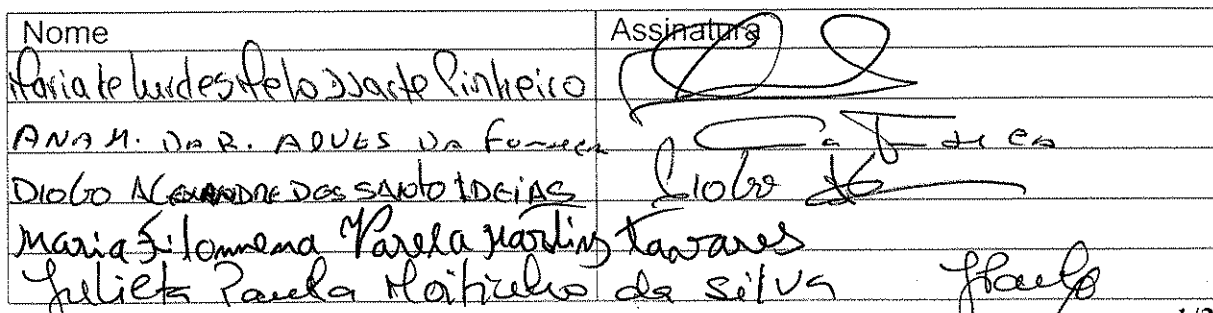 Nome Assinatura
Maria de Lurdes Melo Duarte Pinheiro
ANA M. DA R. ALVES DA Fonseca
DIOGO ALEXANDRE DOS SANTO IDEIAS Diogo
Maria Filomena Varela Martins Tavares
Julieta Paula Moitinho da Silva JPaula
1/2